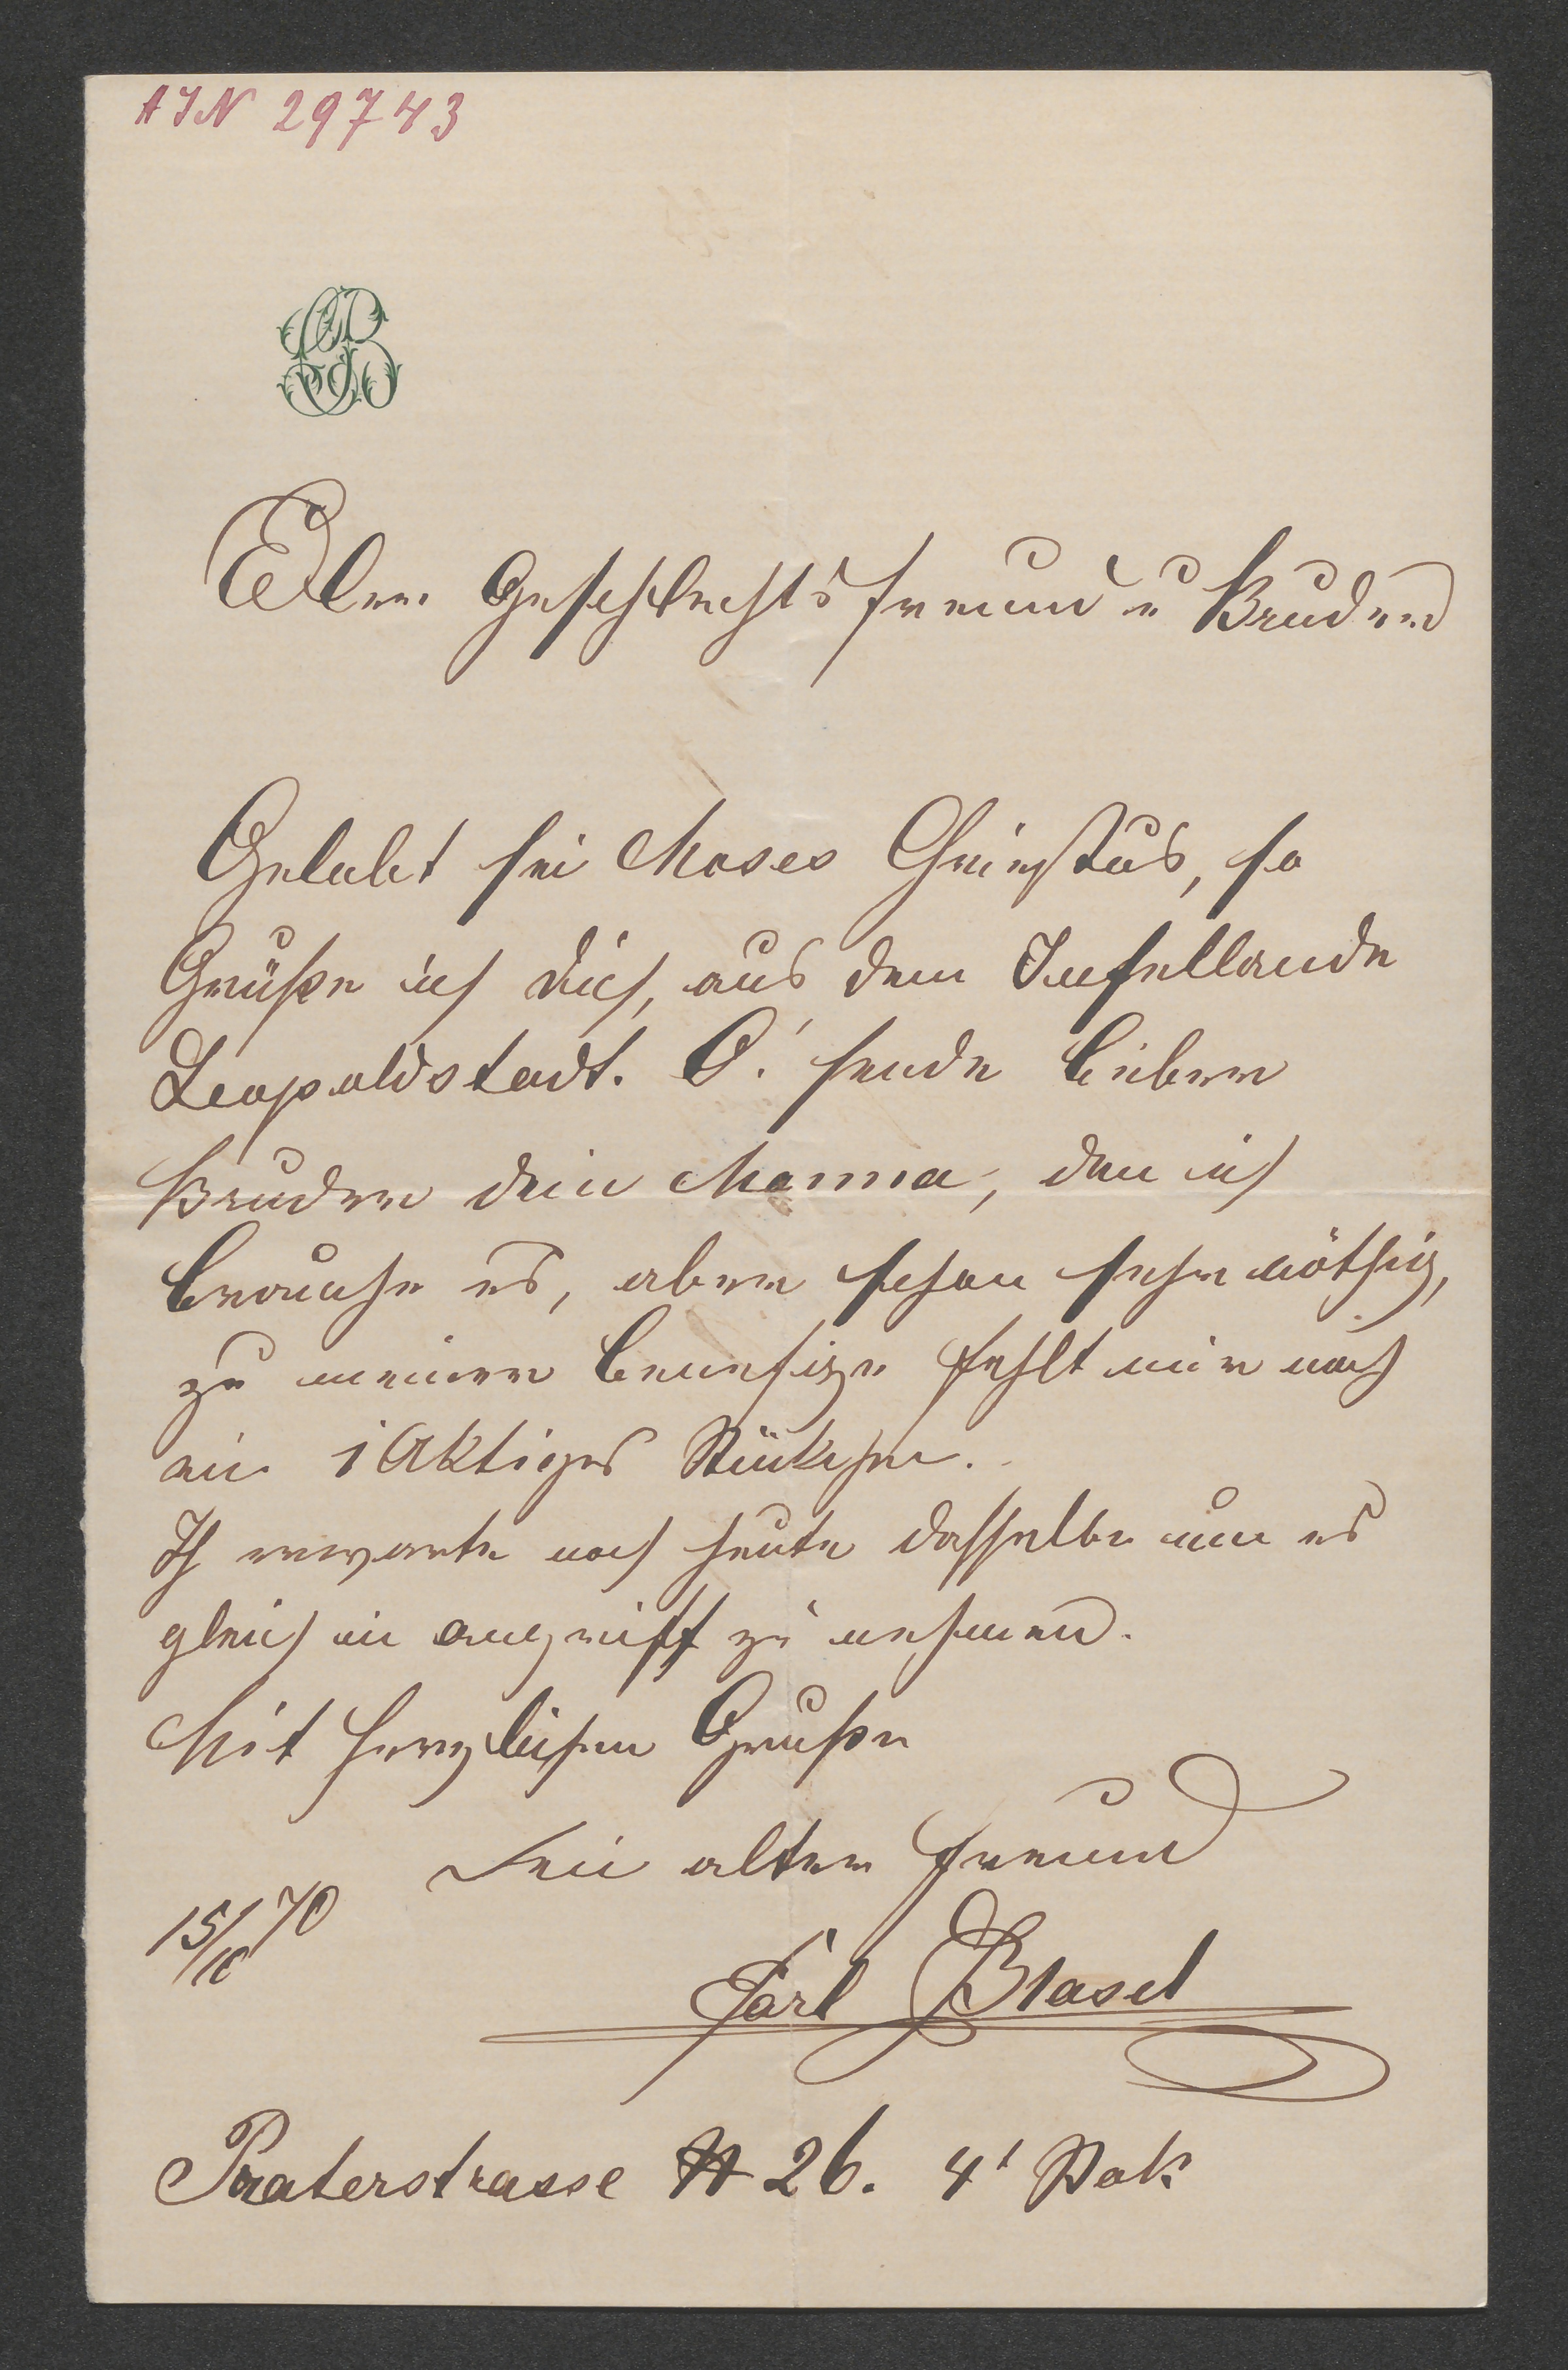 AIN 29743
CB
Edler Geschlechtsfreund u Bruder
Gelobt sei Moses Christus, so
Grüße ich dich, aus dem Inselland
Leopoldstadt. O! sende lieber
Bruder dein Manna, den ich
brauche es, aber schon sehr nöthig,
zu meiner Benefize fehlt mir noch
ein 1 Aktiges Stückchen.
Ich erwarte noch heute dasselbe um es
gleich in angriff zu nehmen.
Mit herzlichem Gruße
Dein alter Freund
15/10 70
Carl Blasel
Praterstrasse N 26. 4t Stok